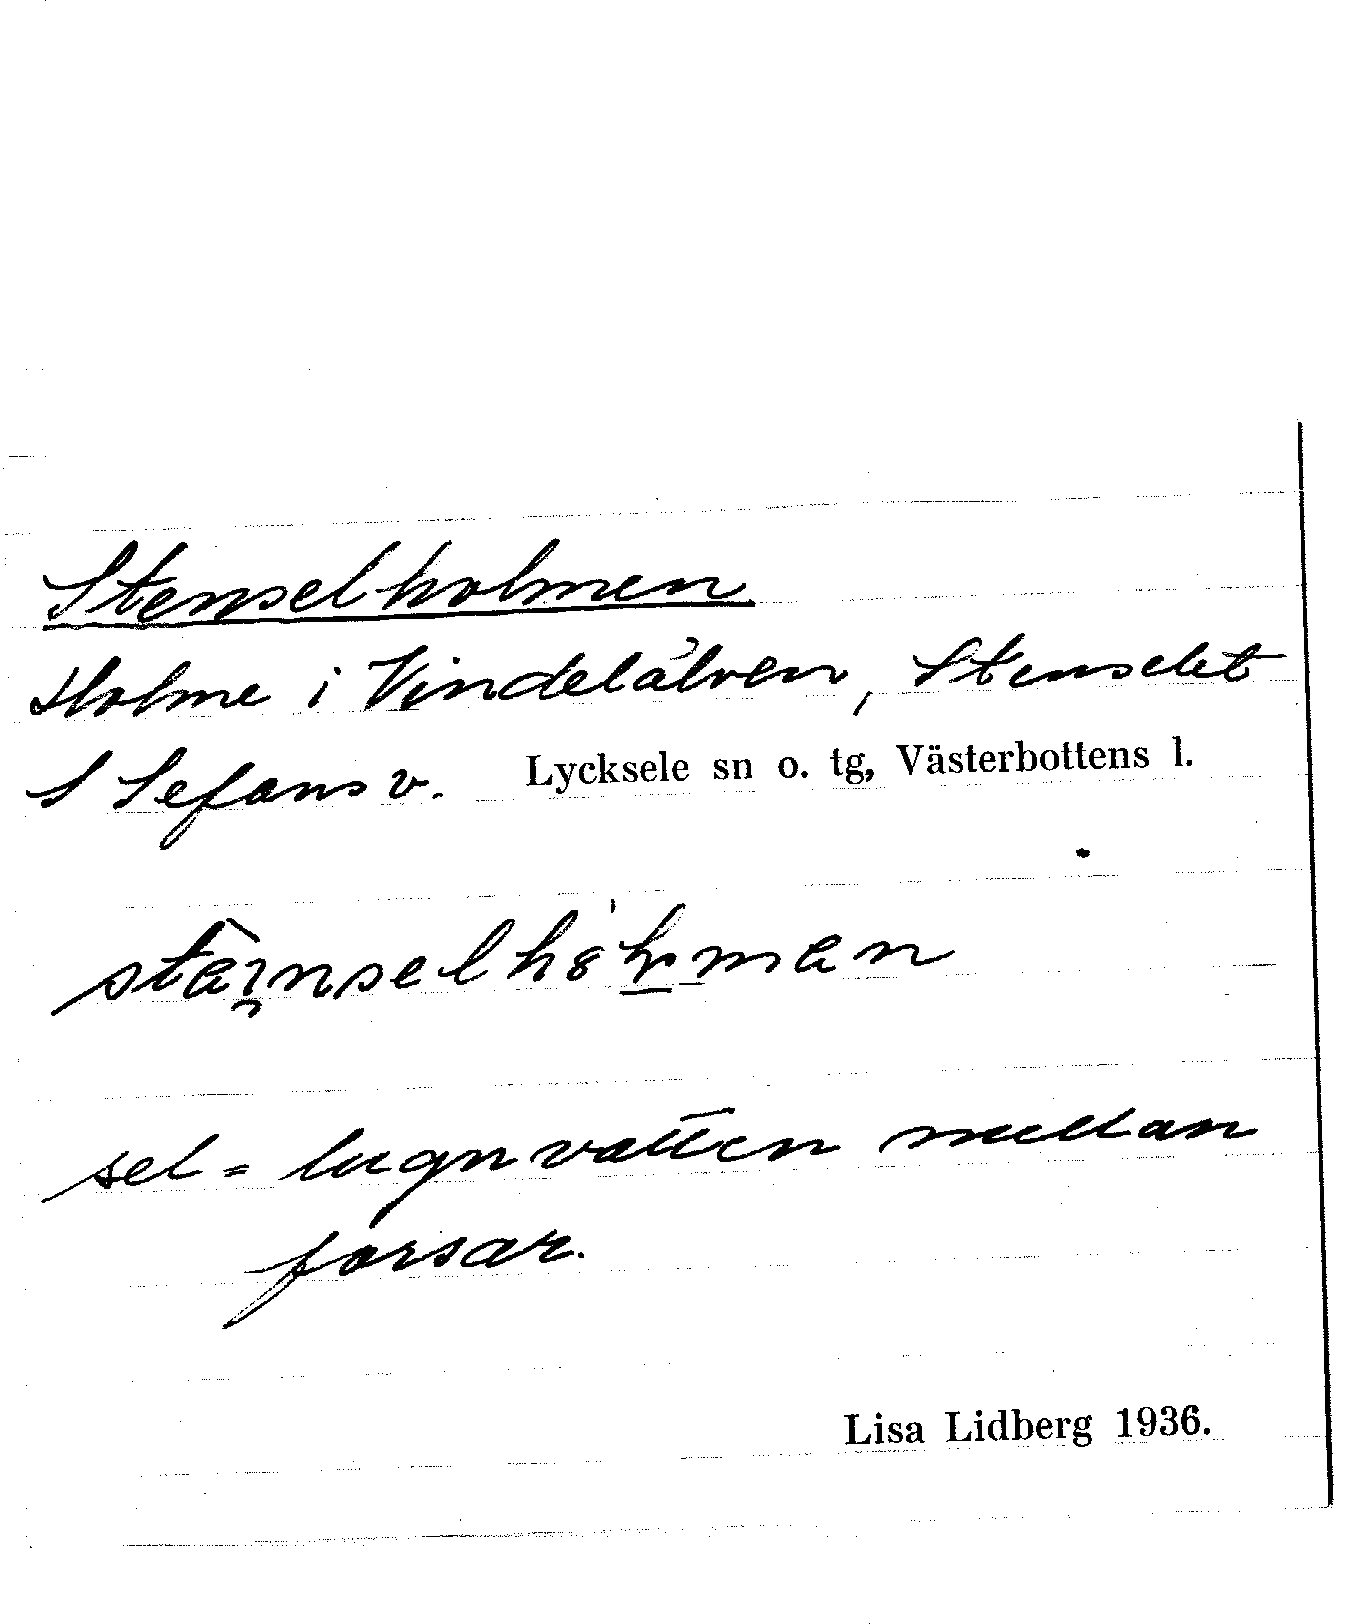 Stenselholmen
Holme i Vindelälven, Stenselet
S Sefans v. Lycksele sn o. tg, Västerbottens l.
sel = lugnvatten mellan
forsar.
Lisa Lidberg 1936.